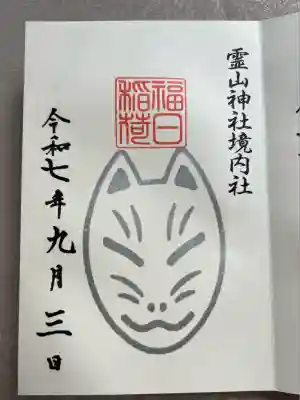 霊山神社境内社
福日
稲荷
令和七年九月三日